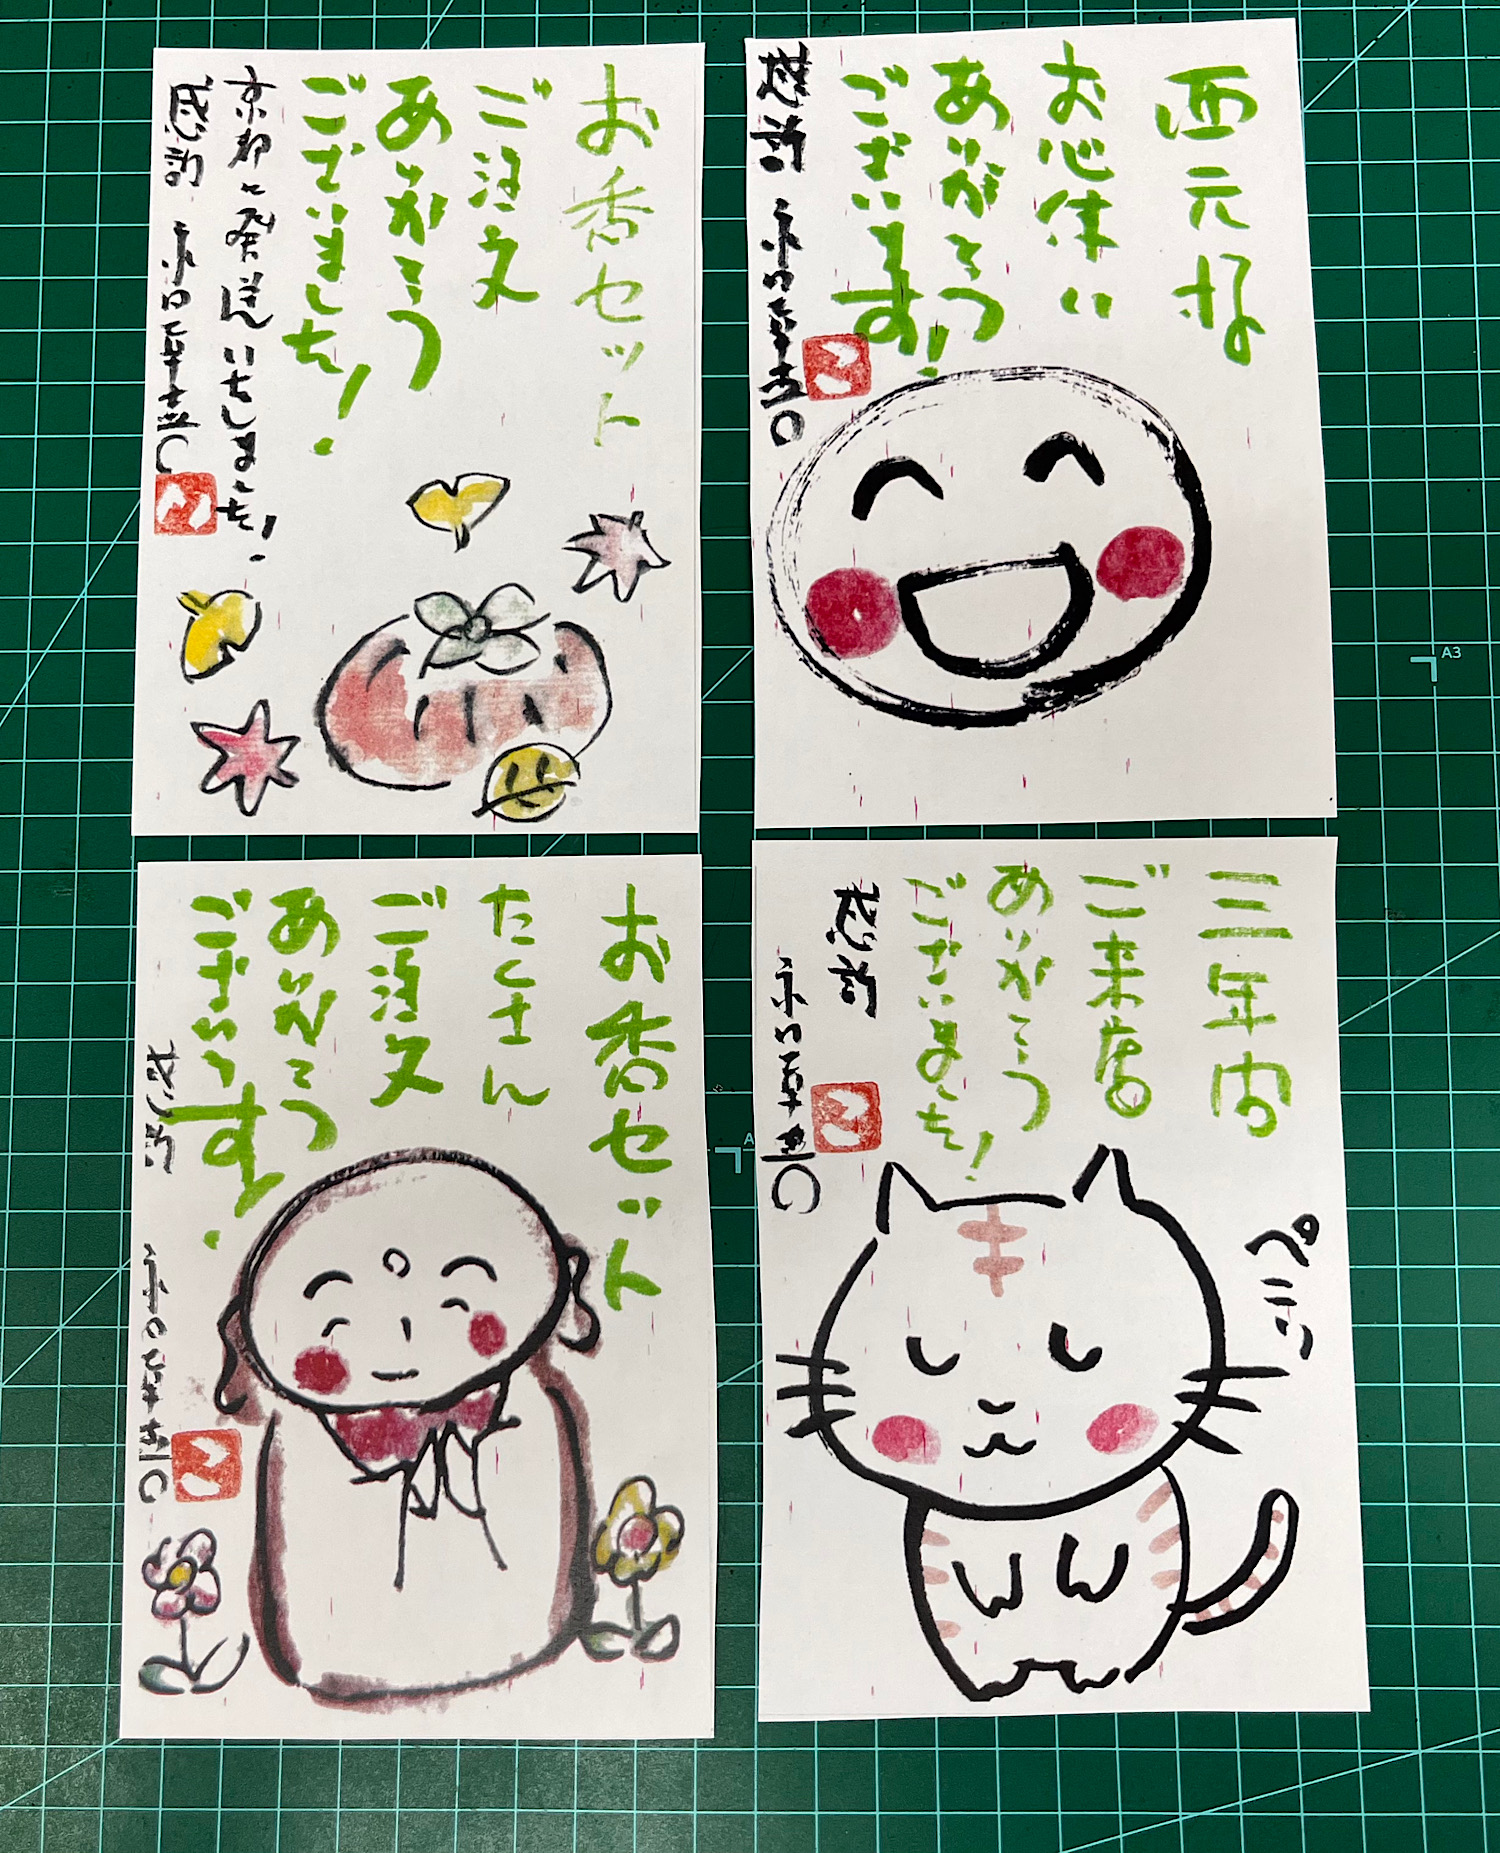 お香セット
ご注文
ありがとう
ございました!
京都に発送いたしました!
感謝
西元様
お心使い
ありがとう
ございます!
感謝
お香セット
たくさん
ご注文
ありがとう
ございます!
感謝
三年内
ご来店
ありがとう
ございました!
感謝
ペこり
A3